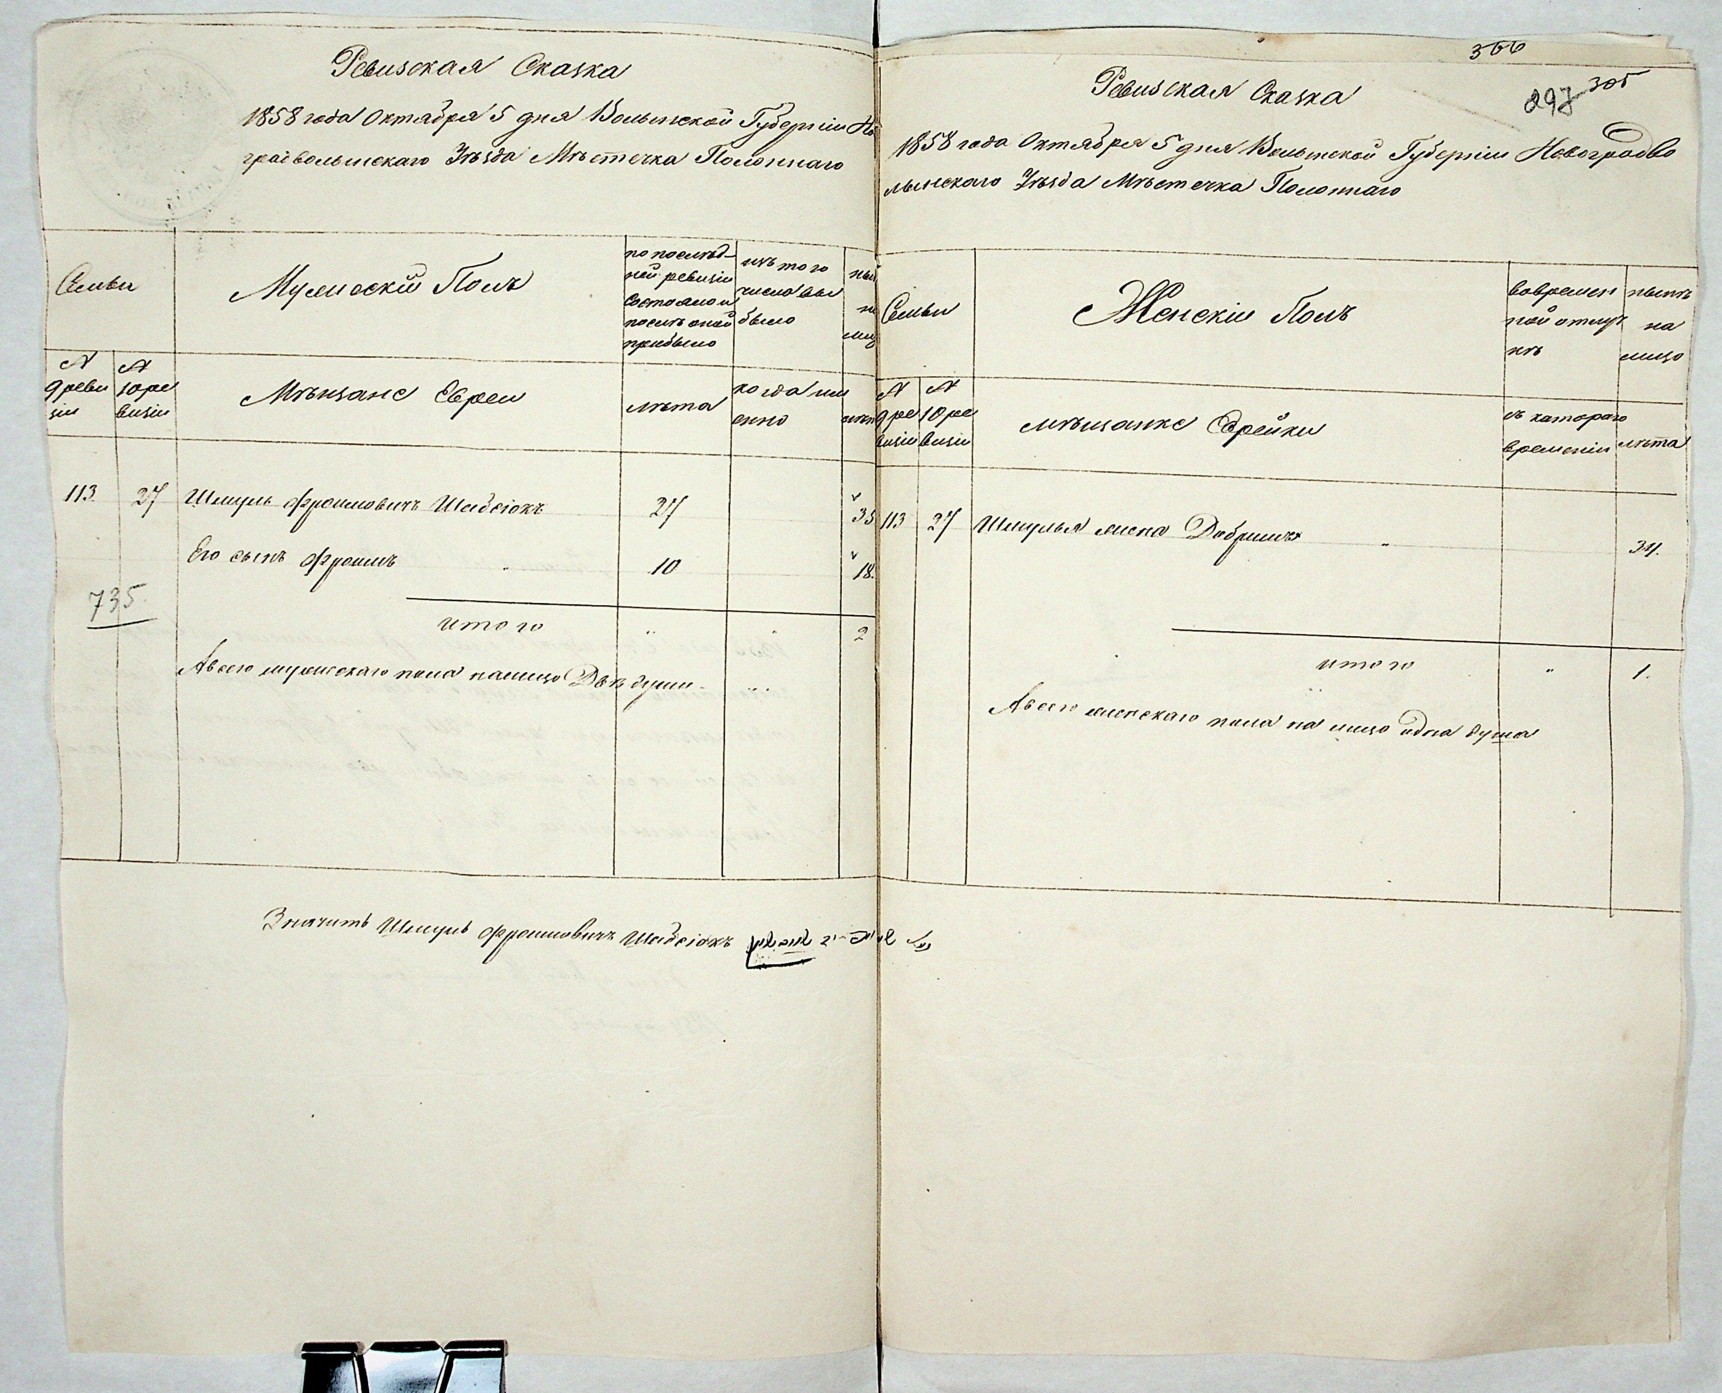 Ревизская Сказка
1858 года Октября 5 дня Волынской Губерніи Но
градволынскаго Уѣзда Мѣстечка Полоннаго
Семьи
Мужескій Полъ
по послѣд-
ней ревизіи
состояло и
послѣ оной
прибыло
изъ того
числа вы
было
ны
на
лиц
№
9 реви
зіи
№
10 ре
визіи
Мѣщане Евреи
лѣта
когда им
енно
лѣт
113. 27 Шмуль Фроимовичъ Шабсіокъ 27 35
Его сынъ Фроимъ " 10 18.
735.
итого " " 2
А всего мужескаго пола налицо Двѣ души.
Значитъ Шмуль Фроимовичъ Шабсіокъ
366
297 305
Ревизская Сказка
1858 года Октября 5 дня Волынской Губерніи Новоградво
лынскаго Уѣзда Мѣстечка Полоннаго
Семьи
Женскій Полъ
во времен
ной отлуч
кѣ
нынѣ
на
лицо
№
9 ре
визіи
№
10 ре
визіи
мѣщанке Еврейки
съ котораго
времени
лѣта
113 27 Шмулья жена Добришъ " 34.
итого " 1.
А всего женскаго пола на лицо одна душа